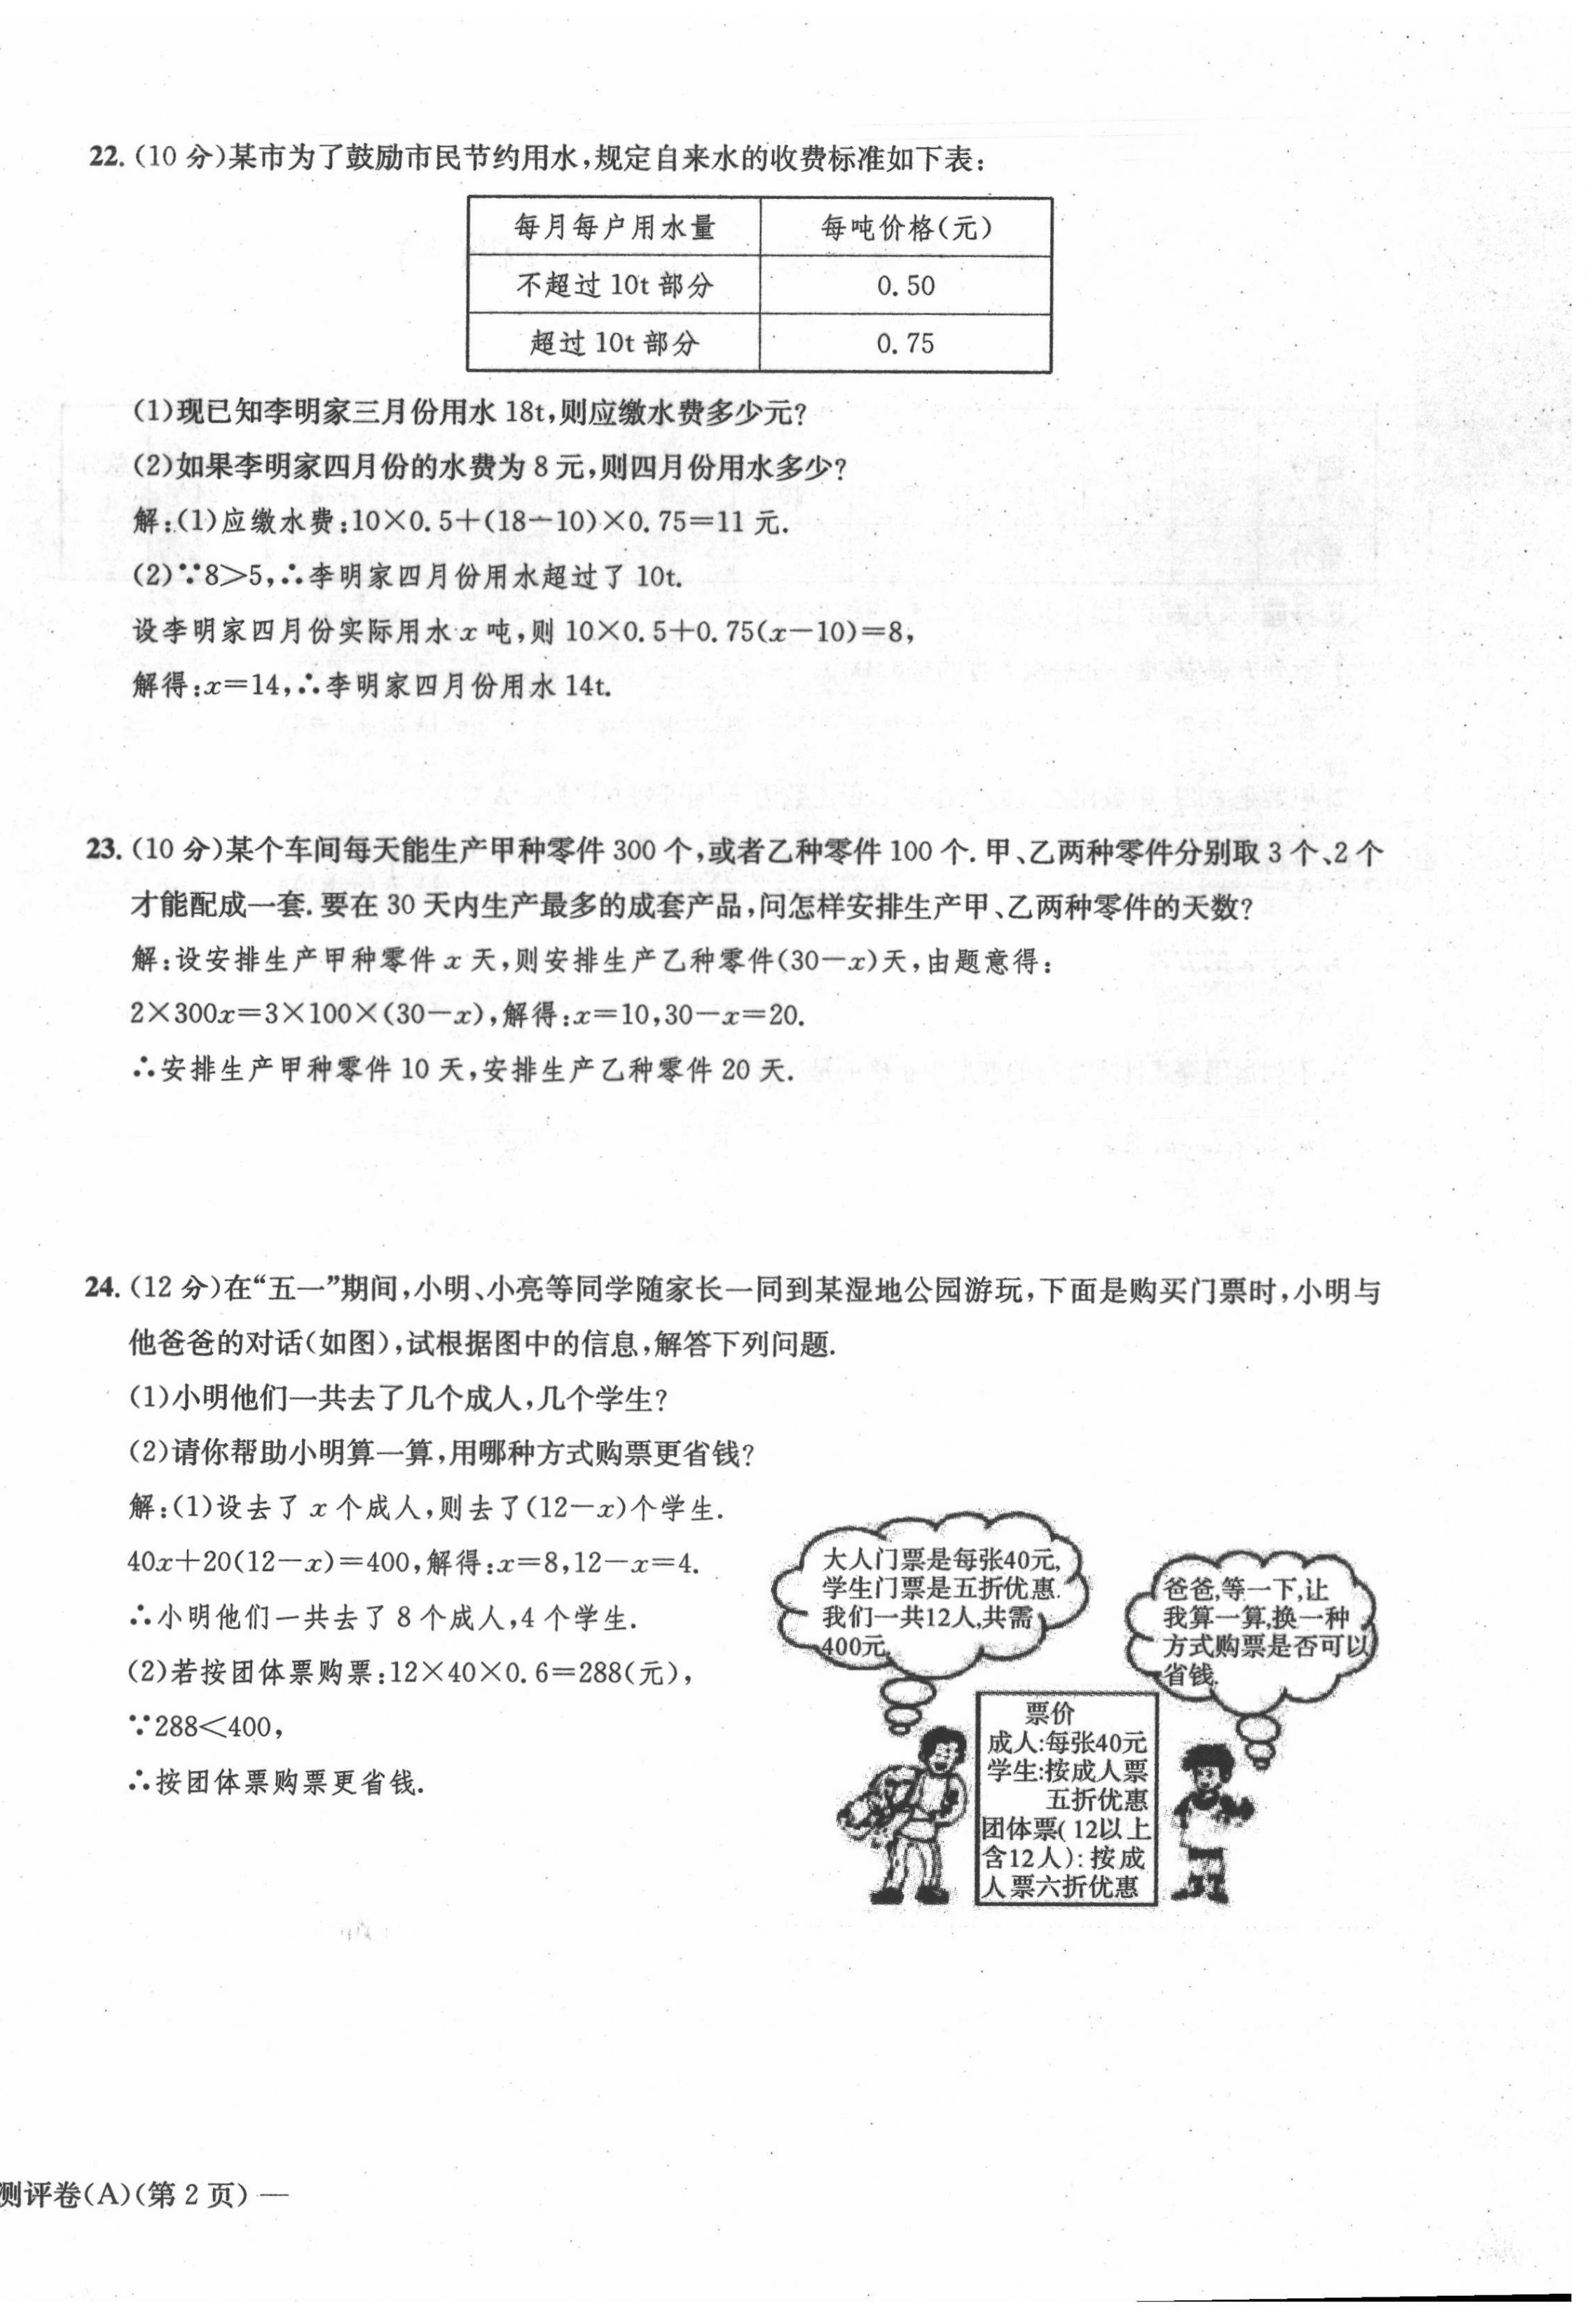 22. (10 分)某市为了鼓励市民节约用水,规定自来水的收费标准如下表:
每月每户用水量 每吨价格(元)
不超过 10t 部分 0.50
超过 10t 部分 0.75
(1)现已知李明家三月份用水 18t,则应缴水费多少元?
(2)如果李明家四月份的水费为 8 元,则四月份用水多少?
解:(1)应缴水费:10×0.5+(18-10)×0.75=11 元.
(2)∵8>5,∴李明家四月份用水超过了 10t.
设李明家四月份实际用水 x 吨,则 10×0.5+0.75(x-10)=8,
解得:x=14,∴李明家四月份用水 14t.
23. (10 分)某个车间每天能生产甲种零件 300 个,或者乙种零件 100 个. 甲、乙两种零件分别取 3 个、2 个
才能配成一套. 要在 30 天内生产最多的成套产品,问怎样安排生产甲、乙两种零件的天数?
解:设安排生产甲种零件 x 天,则安排生产乙种零件(30-x)天,由题意得:
2×300x=3×100×(30-x),解得:x=10,30-x=20.
∴安排生产甲种零件 10 天,安排生产乙种零件 20 天.
24. (12 分)在“五一”期间,小明、小亮等同学随家长一同到某湿地公园游玩,下面是购买门票时,小明与
他爸爸的对话(如图),试根据图中的信息,解答下列问题.
(1)小明他们一共去了几个成人,几个学生?
(2)请你帮助小明算一算,用哪种方式购票更省钱?
解:(1)设去了 x 个成人,则去了(12-x)个学生.
40x+20(12-x)=400,解得:x=8,12-x=4.
∴小明他们一共去了 8 个成人,4 个学生.
(2)若按团体票购票:12×40×0.6=288(元),
∵288<400,
∴按团体票购票更省钱.
大人门票是每张40元,
学生门票是五折优惠.
我们一共12人,共需
400元
爸爸,等一下,让
我算一算,换一种
方式购票是否可以
省钱.
票价
成人:每张40元
学生:按成人票
五折优惠
团体票(12以上
含12人):按成
人票六折优惠
测评卷(A)(第 2 页) —